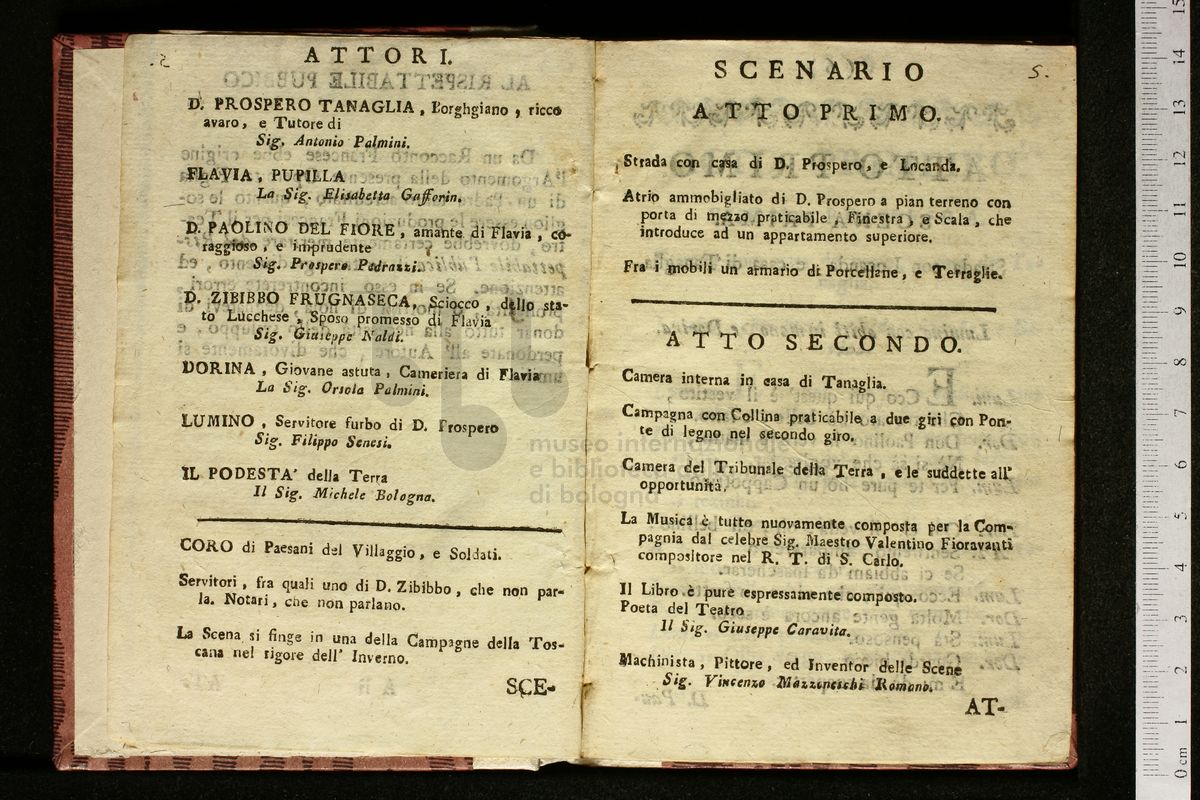 ATTORI.
D. PROSPERO TANAGLIA, Borghgiano, ricco
avaro, e Tutore di
Sig. Antonio Palmini.
FLAVIA, PUPILLA
La Sig. Elisabetta Gafforin.
D. PAOLINO DEL FIORE, amante di Flavia, co-
raggioso, e imprudente
Sig. Prospero Pedrazzi.
D. ZIBIBBO FRUGNASECA, Sciocco, dello sta-
to Lucchese, Sposo promesso di Flavia
Sig. Giuseppe Naldi.
DORINA, Giovane astuta, Cameriera di Flavia
La Sig. Orsola Palmini.
LUMINO, Servitore furbo di D. Prospero
Sig. Filippo Senesi.
IL PODESTA' della Terra
Il Sig. Michele Bologna.
CORO di Paesani del Villaggio, e Soldati.
Servitori, fra quali uno di D. Zibibbo, che non par-
la. Notari, che non parlano.
La Scena si finge in una della Campagne della Tos-
cana nel rigore dell' Inverno.
SCE-
5.
SCENARIO
ATTO PRIMO.
Strada con casa di D. Prospero, e Locanda.
Atrio ammobigliato di D. Prospero a pian terreno con
porta di mezzo praticabile, Finestra, e Scala, che
introduce ad un appartamento superiore.
Fra i mobili un armario di Porcellane, e Terraglie.
ATTO SECONDO.
Camera interna in casa di Tanaglia.
Campagna con Collina praticabile a due giri con Pon-
te di legno nel secondo giro.
Camera del Tribunale della Terra, e le suddette all'
opportunità.
La Musica è tutto nuovamente composta per la Com-
pagnia dal celebre Sig. Maestro Valentino Fioravanti
compositore nel R. T. di S. Carlo.
Il Libro è pure espressamente composto.
Poeta del Teatro
Il Sig. Giuseppe Caravita.
Machinista, Pittore, ed Inventor delle Scene
Sig. Vincenzo Mazzoneschi Romano.
AT-
museo internazionale
e biblioteca della musica
di bologna
0 cm 1 2 3 4 5 6 7 8 9 10 11 12 13 14 15